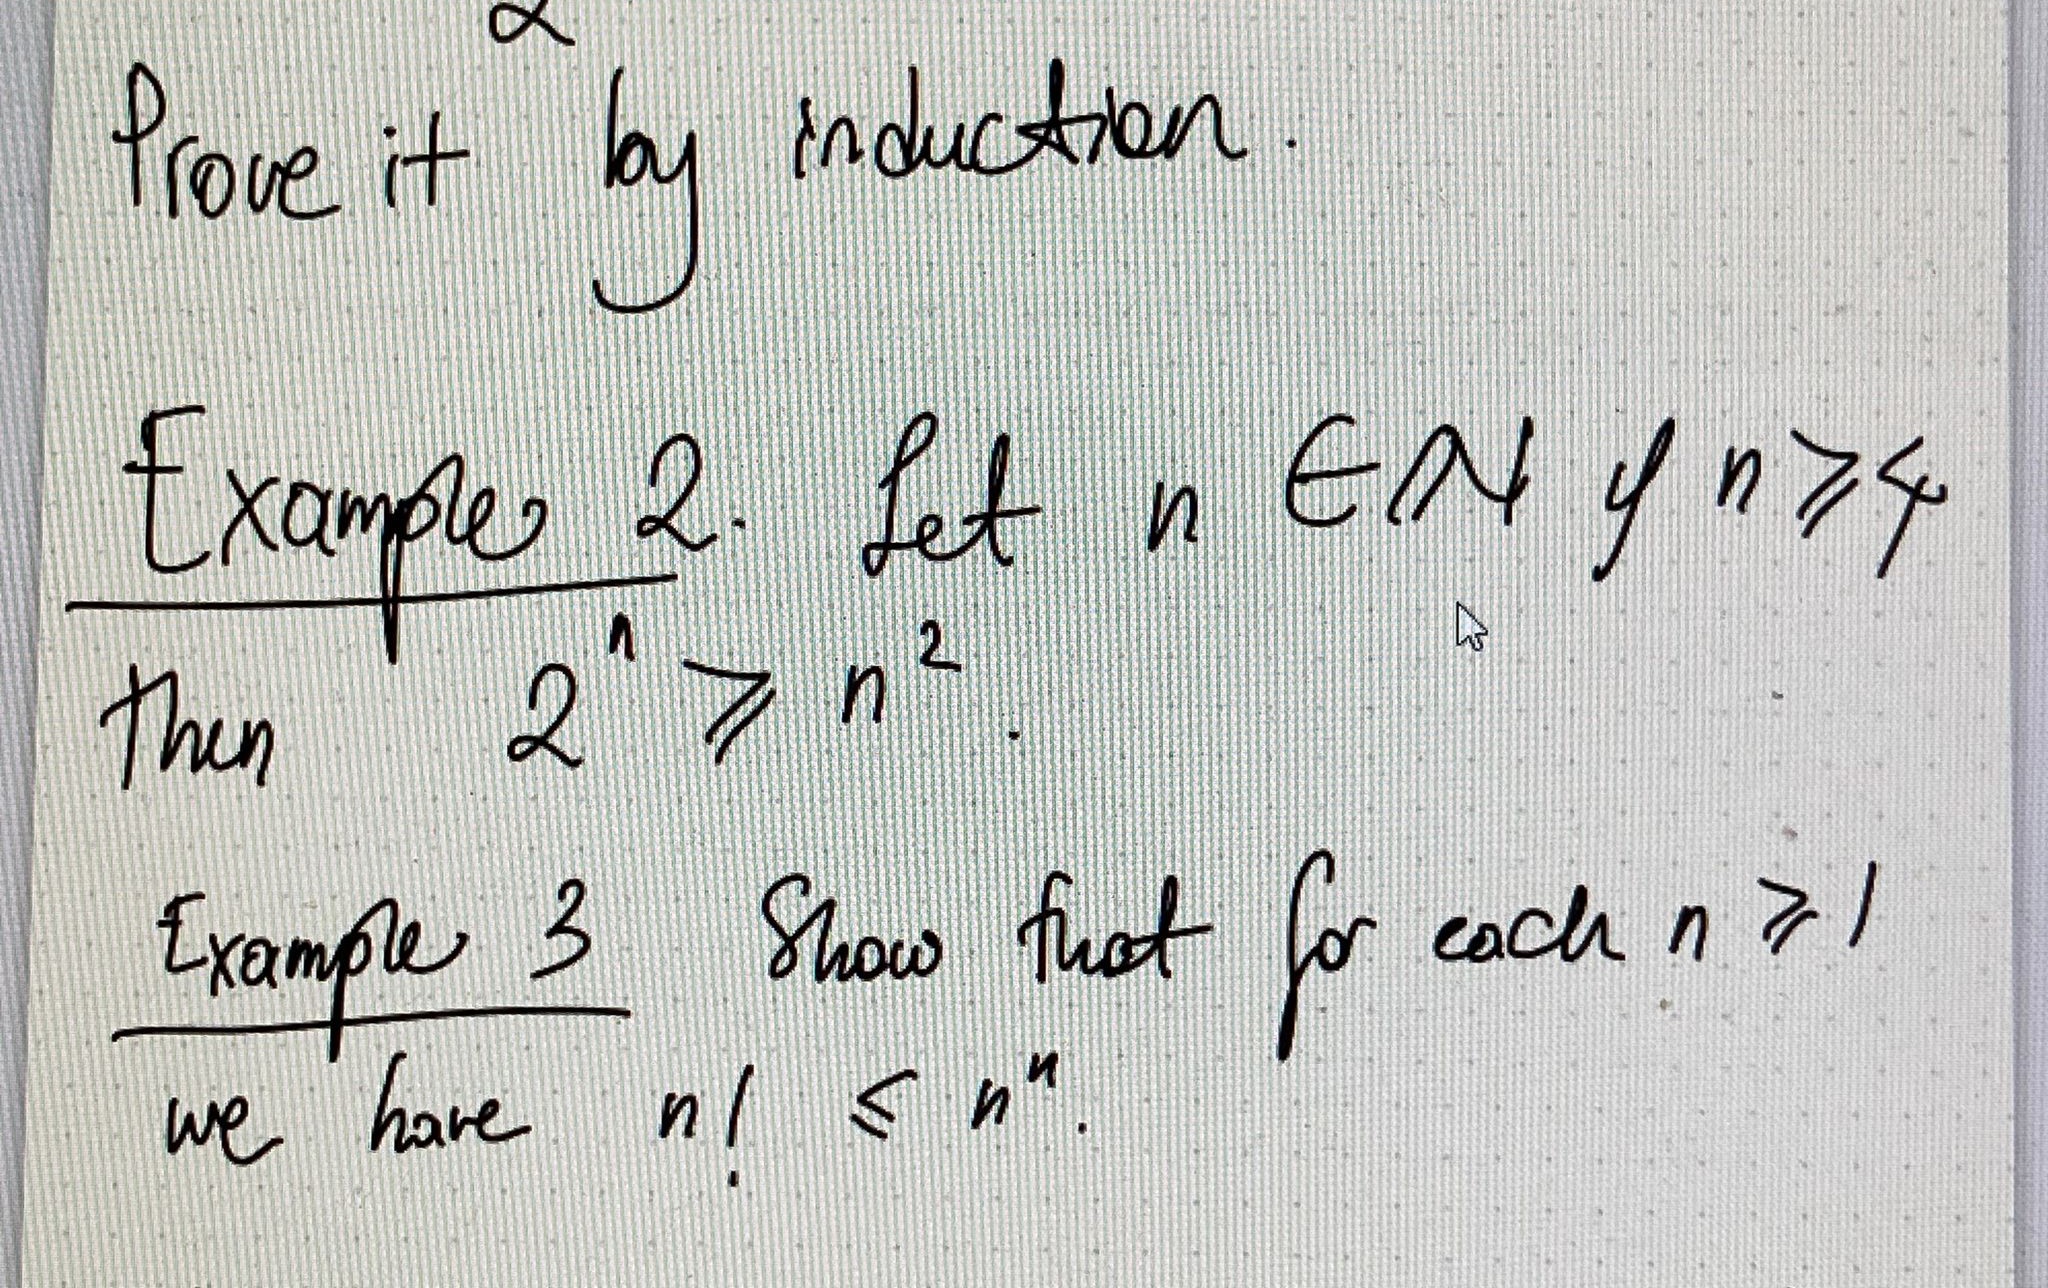 Prove it by induction.
Example 2. Let n ∈ ℕ if n ⩾ 4
Then 2ⁿ ⩾ n².
Example 3 Show that for each n ⩾ 1
we have n! ⩽ nⁿ.